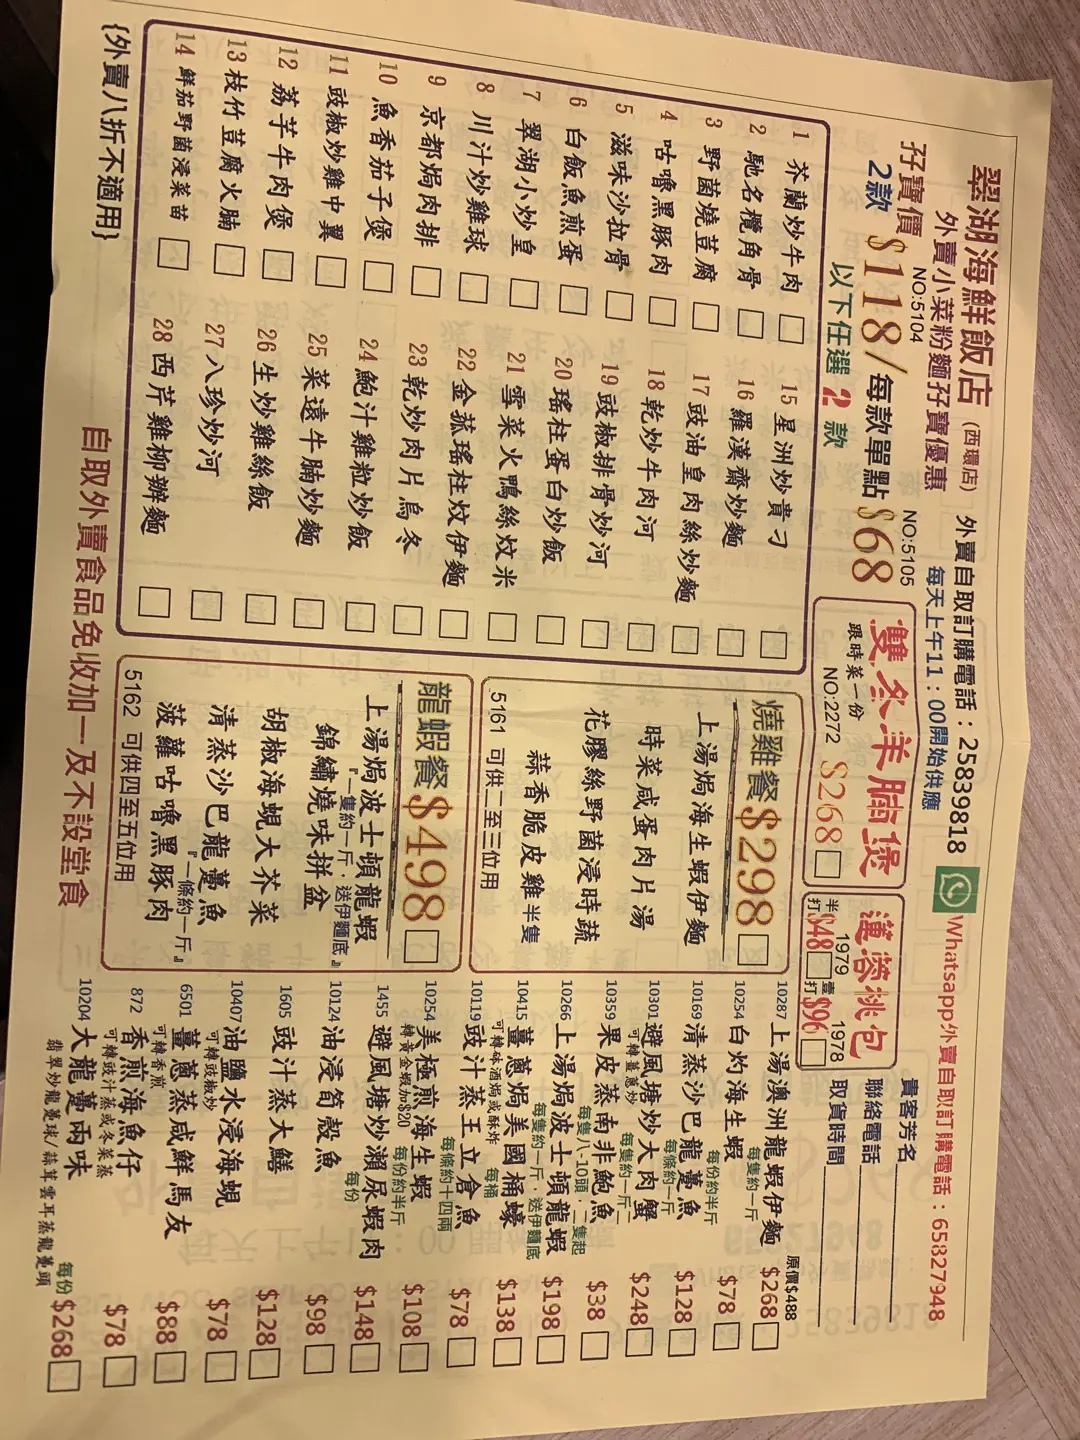 翠湖海鮮飯店 (西環店) 外賣自取訂購電話：25839818 Whatsapp外賣自取訂購電話：65827948
外賣小菜粉麵孖寶優惠 每天上午11：00開始供應
孖寶價 NO:5104 NO:5105
2款 $118/每款單點 $68
以下任選 2 款
1 芥蘭炒牛肉
2 馳名欖角骨
3 野菌燒豆腐
4 咕嚕黑豚肉
5 滋味沙拉骨
6 白飯魚煎蛋
7 翠湖小炒皇
8 川汁炒雞球
9 京都焗肉排
10 魚香茄子煲
11 豉椒炒雞中翼
12 荔芋牛肉煲
13 枝竹豆腐火腩
14 鮮茄野菌浸菜苗
15 星洲炒貴刁
16 羅漢齋炒麵
17 豉油皇肉絲炒麵
18 乾炒牛肉河
19 豉椒排骨炒河
20 瑤柱蛋白炒飯
21 雪菜火鴨絲炆米
22 金菇瑤柱炆伊麵
23 乾炒肉片烏冬
24 鮑汁雞粒炒飯
25 菜遠牛腩炒麵
26 生炒雞絲飯
27 八珍炒河
28 西芹雞柳辦麵
{外賣八折不適用}
雙冬羊腩煲
跟時菜一份
NO:2272 $268
蓮蓉桃包
1979 1978
半打 $48 壹打 $96
貴客芳名
聯絡電話
取貨時間
燒雞餐 $298
上湯焗海生蝦伊麵
時菜咸蛋肉片湯
花膠絲野菌浸時蔬
蒜香脆皮雞半隻
5161 可供二至三位用
龍蝦餐 $498
上湯焗波士頓龍蝦
『一隻約一斤，送伊麵底』
錦繡燒味拼盆
胡椒海蜆大芥菜
清蒸沙巴龍躉魚
『一條約一斤』
菠蘿咕嚕黑豚肉
5162 可供四至五位用
原價$488
10287 上湯澳洲龍蝦伊麵 每隻約一斤 $268
10254 白灼海生蝦 每份約半斤 $78
10169 清蒸沙巴龍躉魚 每條約一斤 $128
10301 避風塘炒大肉蟹 每隻約一斤 $248
可轉薑蔥炒
10359 果皮蒸南非鮑魚 每隻八-10頭，二隻起 $38
10266 上湯焗波士頓龍蝦 每隻約一斤，送伊麵底 $198
10415 薑蔥焗美國桶蠔 每桶 $138
可轉砵酒焗或酥炸
10119 豉汁蒸王立倉魚 每條約十四兩 $78
10254 美極煎海生蝦 每份約半斤 $108
轉黃金蝦加$20
1455 避風塘炒瀨尿蝦肉 每份 $148
10124 油浸筍殼魚 $98
1605 豉汁蒸大鱔 $128
10407 油鹽水浸海蜆 $78
可轉豉椒炒
6501 薑蔥蒸咸鮮馬友 $88
可轉香煎
872 香煎海魚仔 $78
可轉豉汁蒸或冬菜蒸
10204 大龍躉兩味 每份 $268
翡翠炒龍躉球/蒜茸雲耳蒸龍躉頭
自取外賣食品免收加一及不設堂食